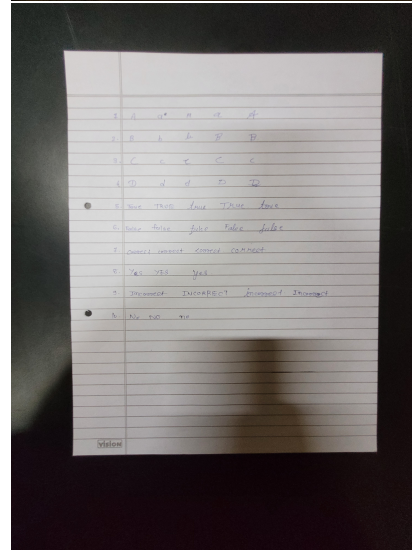 1. A a a a A
2. B b b B B
3. C c c C c
4. D d d D D
5. True TRUE true TRUE true
6. False False false False false
7. correct correct correct correct
8. Yes YES yes
9. Incorrect INCORRECT incorrect Incorrect
10. No NO no
vision